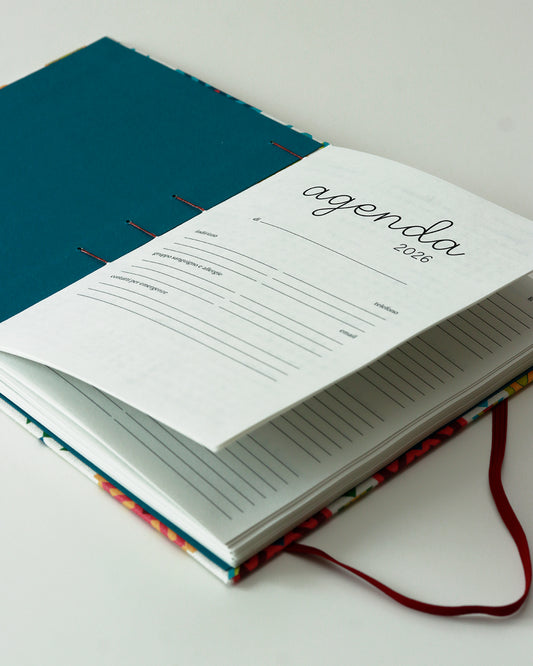 agenda
2026
di
indirizzo
telefono
gruppo sanguigno e allergie
email
contatti per emergenze